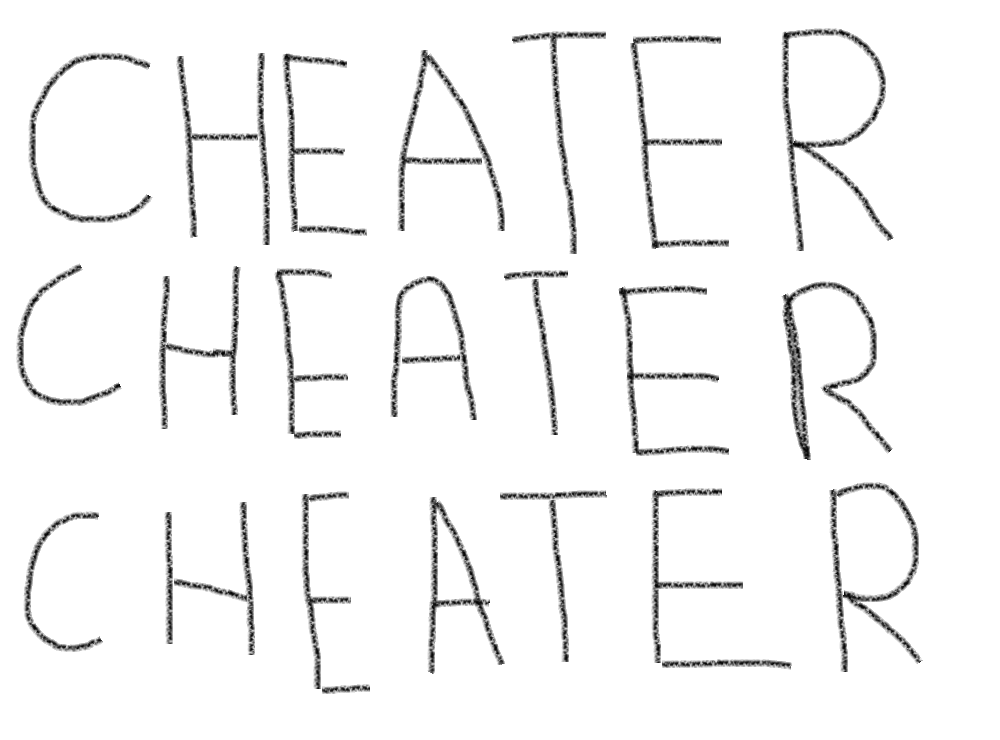 CHEATER
CHEATER
CHEATER